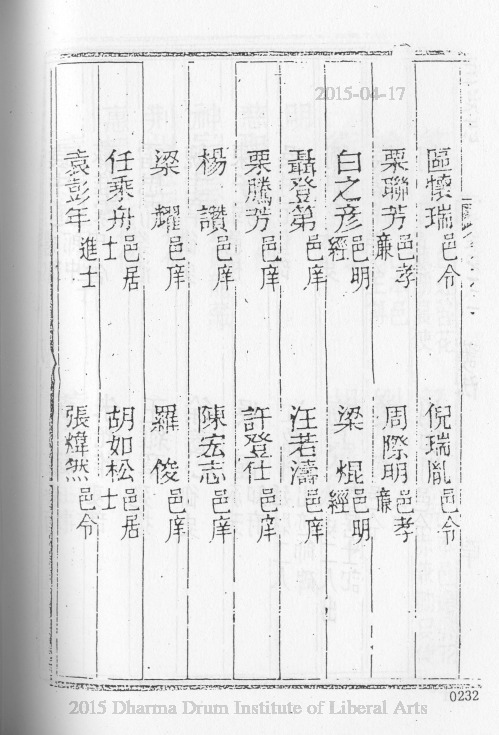 2015-04-17
區懷瑞邑令 倪瑞胤邑令
栗聯芳邑孝廉 周際明邑孝廉
白之彥邑明經 梁焜邑明經
聶登第邑庠 汪若濤邑庠
栗騰芳邑庠 許登仕邑庠
楊讚邑庠 陳宏志邑庠
梁耀邑庠 羅俊邑庠
任乘舟邑居士 胡如松邑居士
袁彭年進士 張煒然邑令
0232
2015 Dharma Drum Institute of Liberal Arts